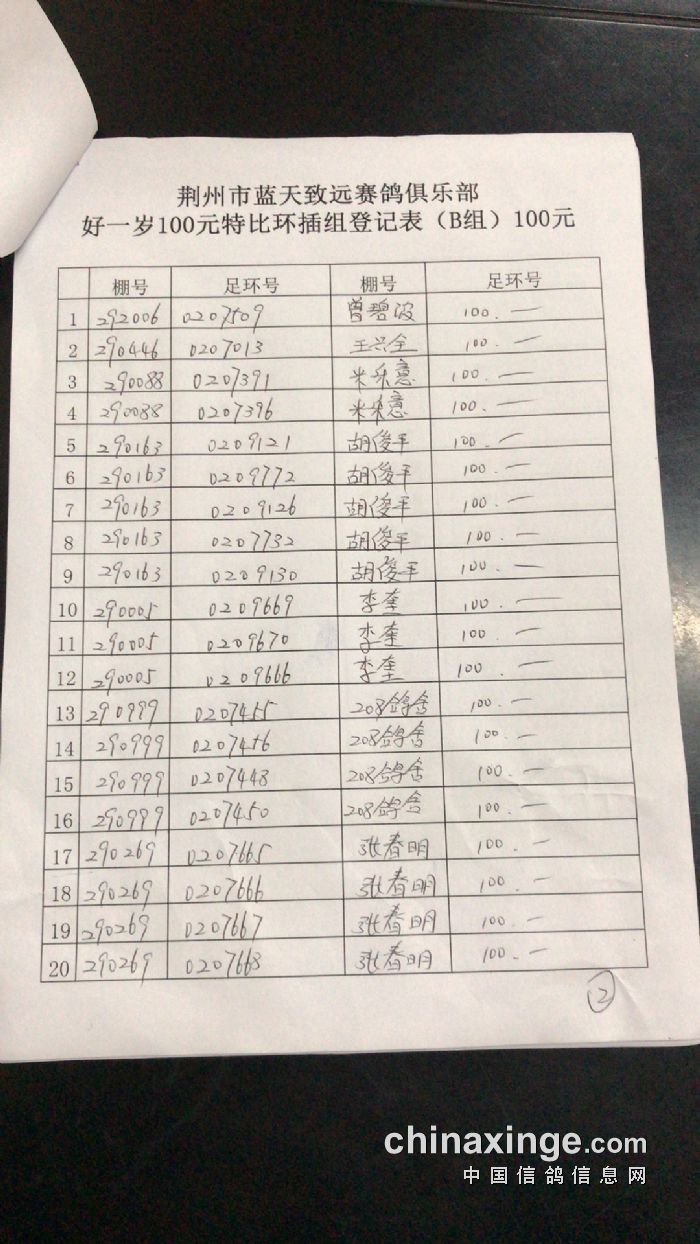 荆州市蓝天致远赛鸽俱乐部
好一岁100元特比环插组登记表（B组）100元
棚号 足环号 棚号 足环号
1 292006 0207509 曾碧波 100.一
2 290446 0207013 王兴全 100.一
3 290088 0207391 米采意 100.一
4 290088 0207396 米采意 100.一
5 290163 0209121 胡俊平 100.一
6 290163 0209772 胡俊平 100.一
7 290163 0209126 胡俊平 100.一
8 290163 0207732 胡俊平 100.一
9 290163 0209130 胡俊平 100.一
10 290005 0209669 李奎 100.一
11 290005 0209670 李奎 100.一
12 290005 0209666 李奎 100.一
13 290999 0207455 208鸽舍 100.一
14 290999 0207456 208鸽舍 100.一
15 290999 0207448 208鸽舍 100.一
16 290999 0207450 208鸽舍 100.一
17 290269 0207665 张春明 100.一
18 290269 0207666 张春明 100.一
19 290269 0207667 张春明 100.一
20 290269 0207668 张春明 100.一
2
chinaxinge.com
中国信鸽信息网